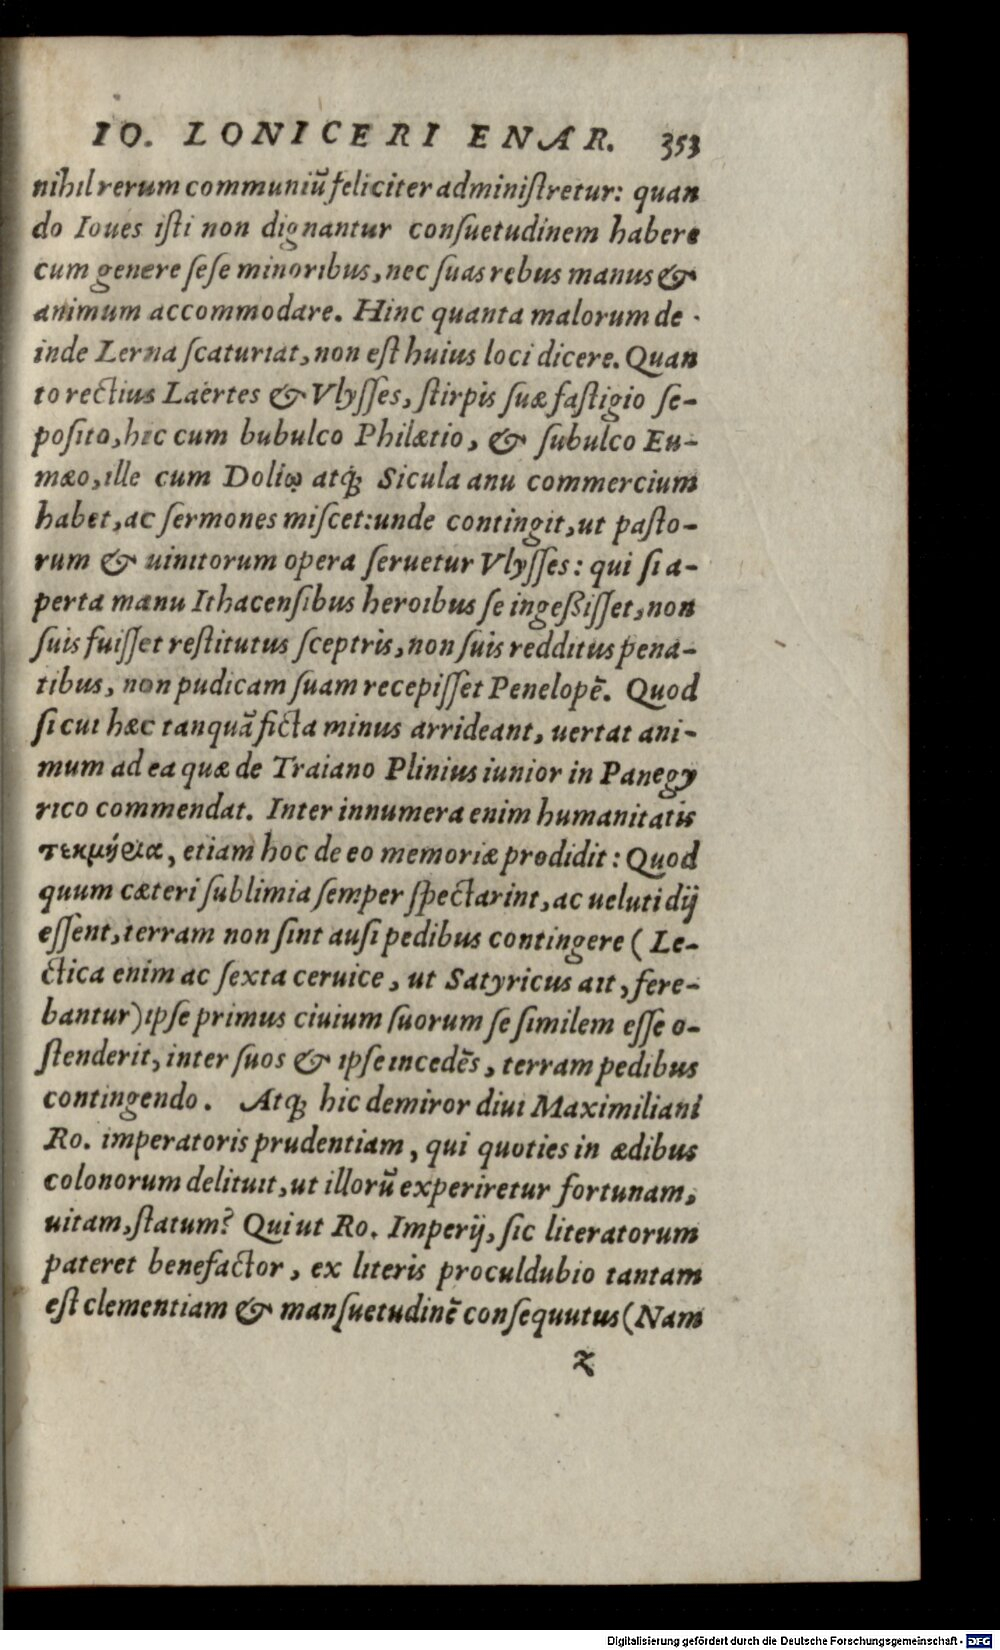 IO. LONICERI ENAR. 353
nihil rerum communiũ feliciter adminiſtretur: quan
do Ioues iſti non dignantur conſuetudinem habere
cum genere ſeſe minoribus, nec ſuas rebus manus &
animum accommodare. Hinc quanta malorum de
inde Lerna ſcaturiat, non eſt huius loci dicere. Quan
to rectius Laërtes & Vlyſſes, ſtirpis ſuæ faſtigio ſe-
poſito, hic cum bubulco Philætio, & ſubulco Eu-
mæo, ille cum Doliῳ atq́; Sicula anu commercium
habet, ac ſermones miſcet: unde contingit, ut paſto-
rum & uinitorum opera ſeruetur Vlyſſes: qui ſi a-
perta manu Ithacenſibus heroibus ſe ingeßiſſet, non
ſuis fuiſſet reſtitutus ſceptris, non ſuis redditus pena-
tibus, non pudicam ſuam recepiſſet Penelopẽ. Quod
ſi cui hæc tanquã ficta minus arrideant, uertat ani-
mum ad ea quæ de Traiano Plinius iunior in Panegy
rico commendat. Inter innumera enim humanitatis
τεκμήρια, etiam hoc de eo memoriæ prodidit: Quod
quum cæteri ſublimia ſemper ſpectarint, ac ueluti dij
eſſent, terram non ſint auſi pedibus contingere (Le-
ctica enim ac ſexta ceruice, ut Satyricus ait, fere-
bantur) ipſe primus ciuium ſuorum ſe ſimilem eſſe o-
ſtenderit, inter ſuos & ipſe incedẽs, terram pedibus
contingendo. Atq́; hic demiror diui Maximiliani
Ro. imperatoris prudentiam, qui quoties in ædibus
colonorum delituit, ut illorũ experiretur fortunam,
uitam, ſtatum? Qui ut Ro. Imperij, ſic literatorum
pateret benefactor, ex literis proculdubio tantam
eſt clementiam & manſuetudinẽ conſequutus (Nam
z
Digitalisierung gefördert durch die Deutsche Forschungsgemeinschaft - DFG